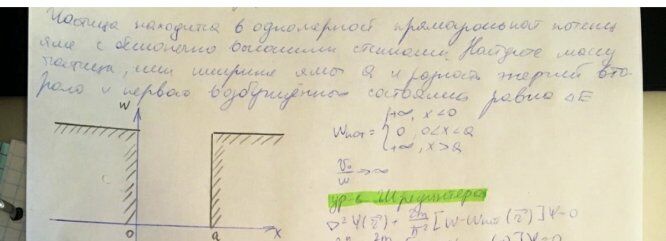 Частица находится в одномерной прямоугольной потенц
яме с бесконечно высокими стенками. Найдите массу
частицы, если ширина ямы a и разность энергий вто-
рого и первого возбуждённых состояний равна ΔE
W
+∞, x<0
Wпот = { 0, 0<x<a
+∞, x>a
→∞
ур-е Шрёдингера
0 a x
∇²Ψ(r⃗) + 2m/ħ² [W-Wпот(r⃗)]Ψ=0